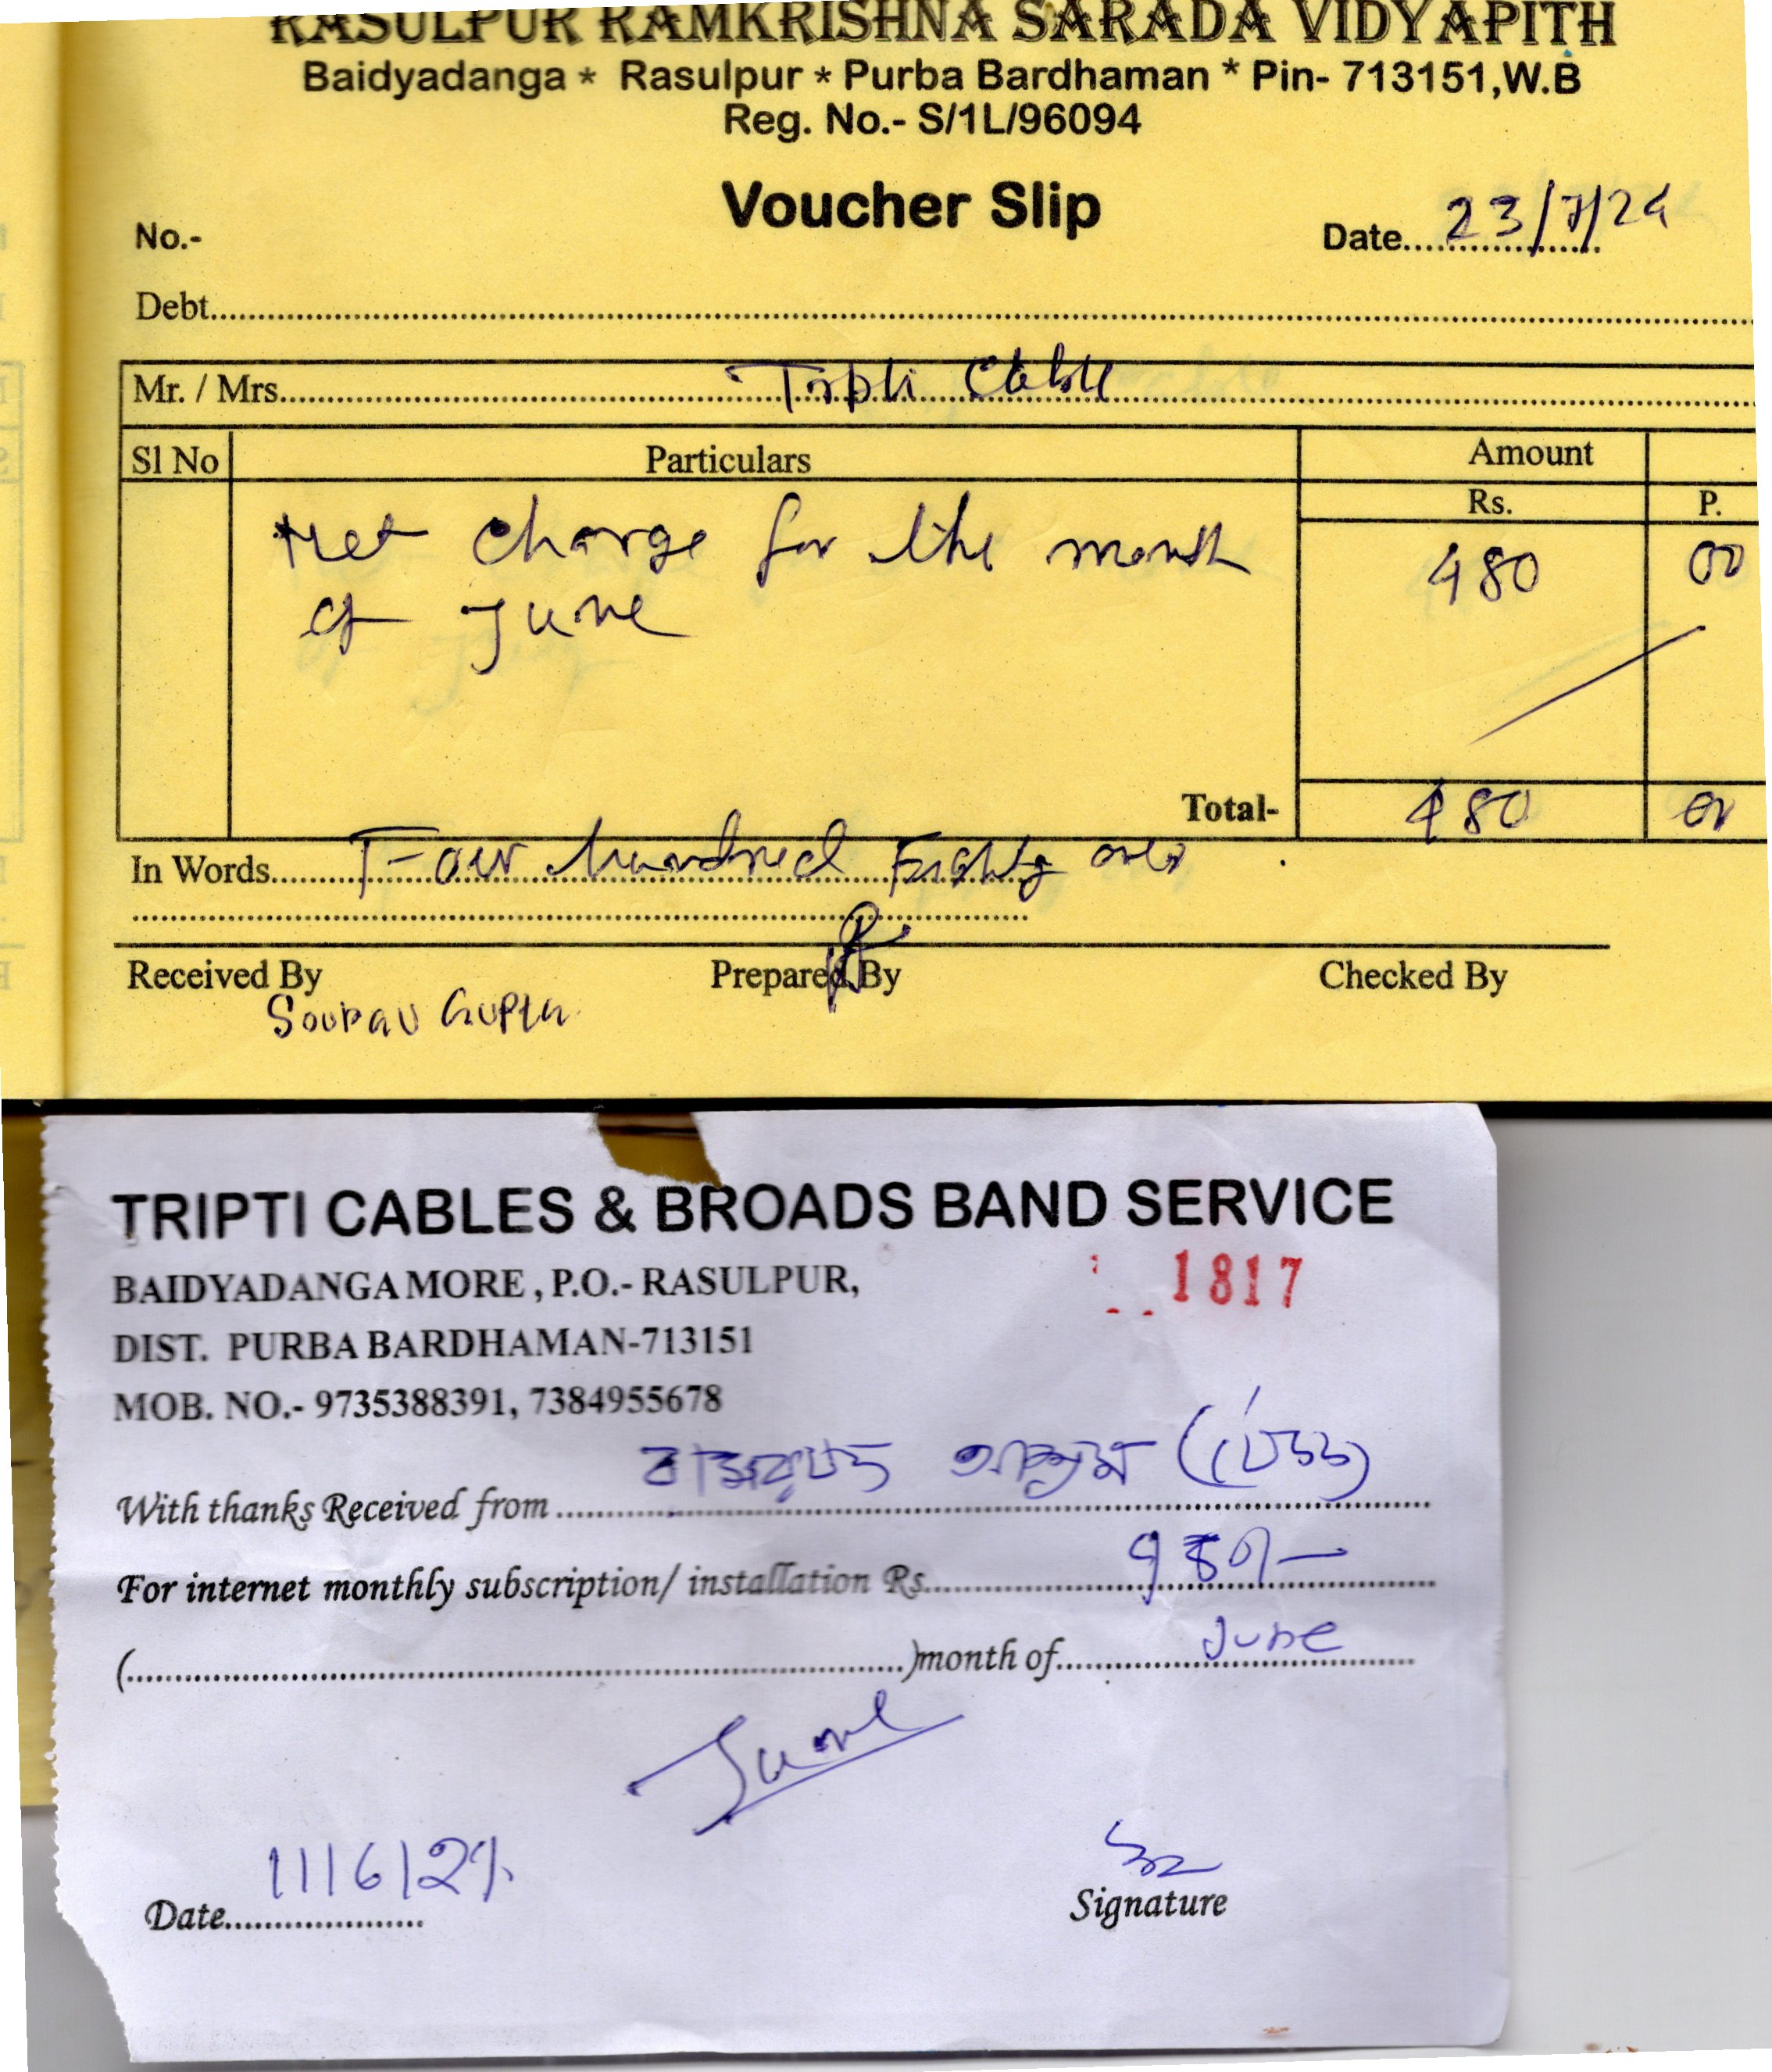 RASULPUR RAMKRISHNA SARADA VIDYAPITH
Baidyadanga * Rasulpur * Purba Bardhaman * Pin- 713151,W.B
Reg. No.- S/1L/96094
Voucher Slip
No.-
Date 23/7/24
Debt
Mr. / Mrs. Tripti Cable
Sl No Particulars Amount
Rs. P.
Net charge for the month 480 00
of June
Total- 480 00
In Words Four hundred Eighty only
Received By Prepared By Checked By
Sourav Gupta
TRIPTI CABLES & BROADS BAND SERVICE
1817
BAIDYADANGA MORE, P.O.- RASULPUR,
DIST. PURBA BARDHAMAN-713151
MOB. NO.- 9735388391, 7384955678
With thanks Received from
For internet monthly subscription/ installation Rs.
( )month of June
June
Date 11/6/24
Signature